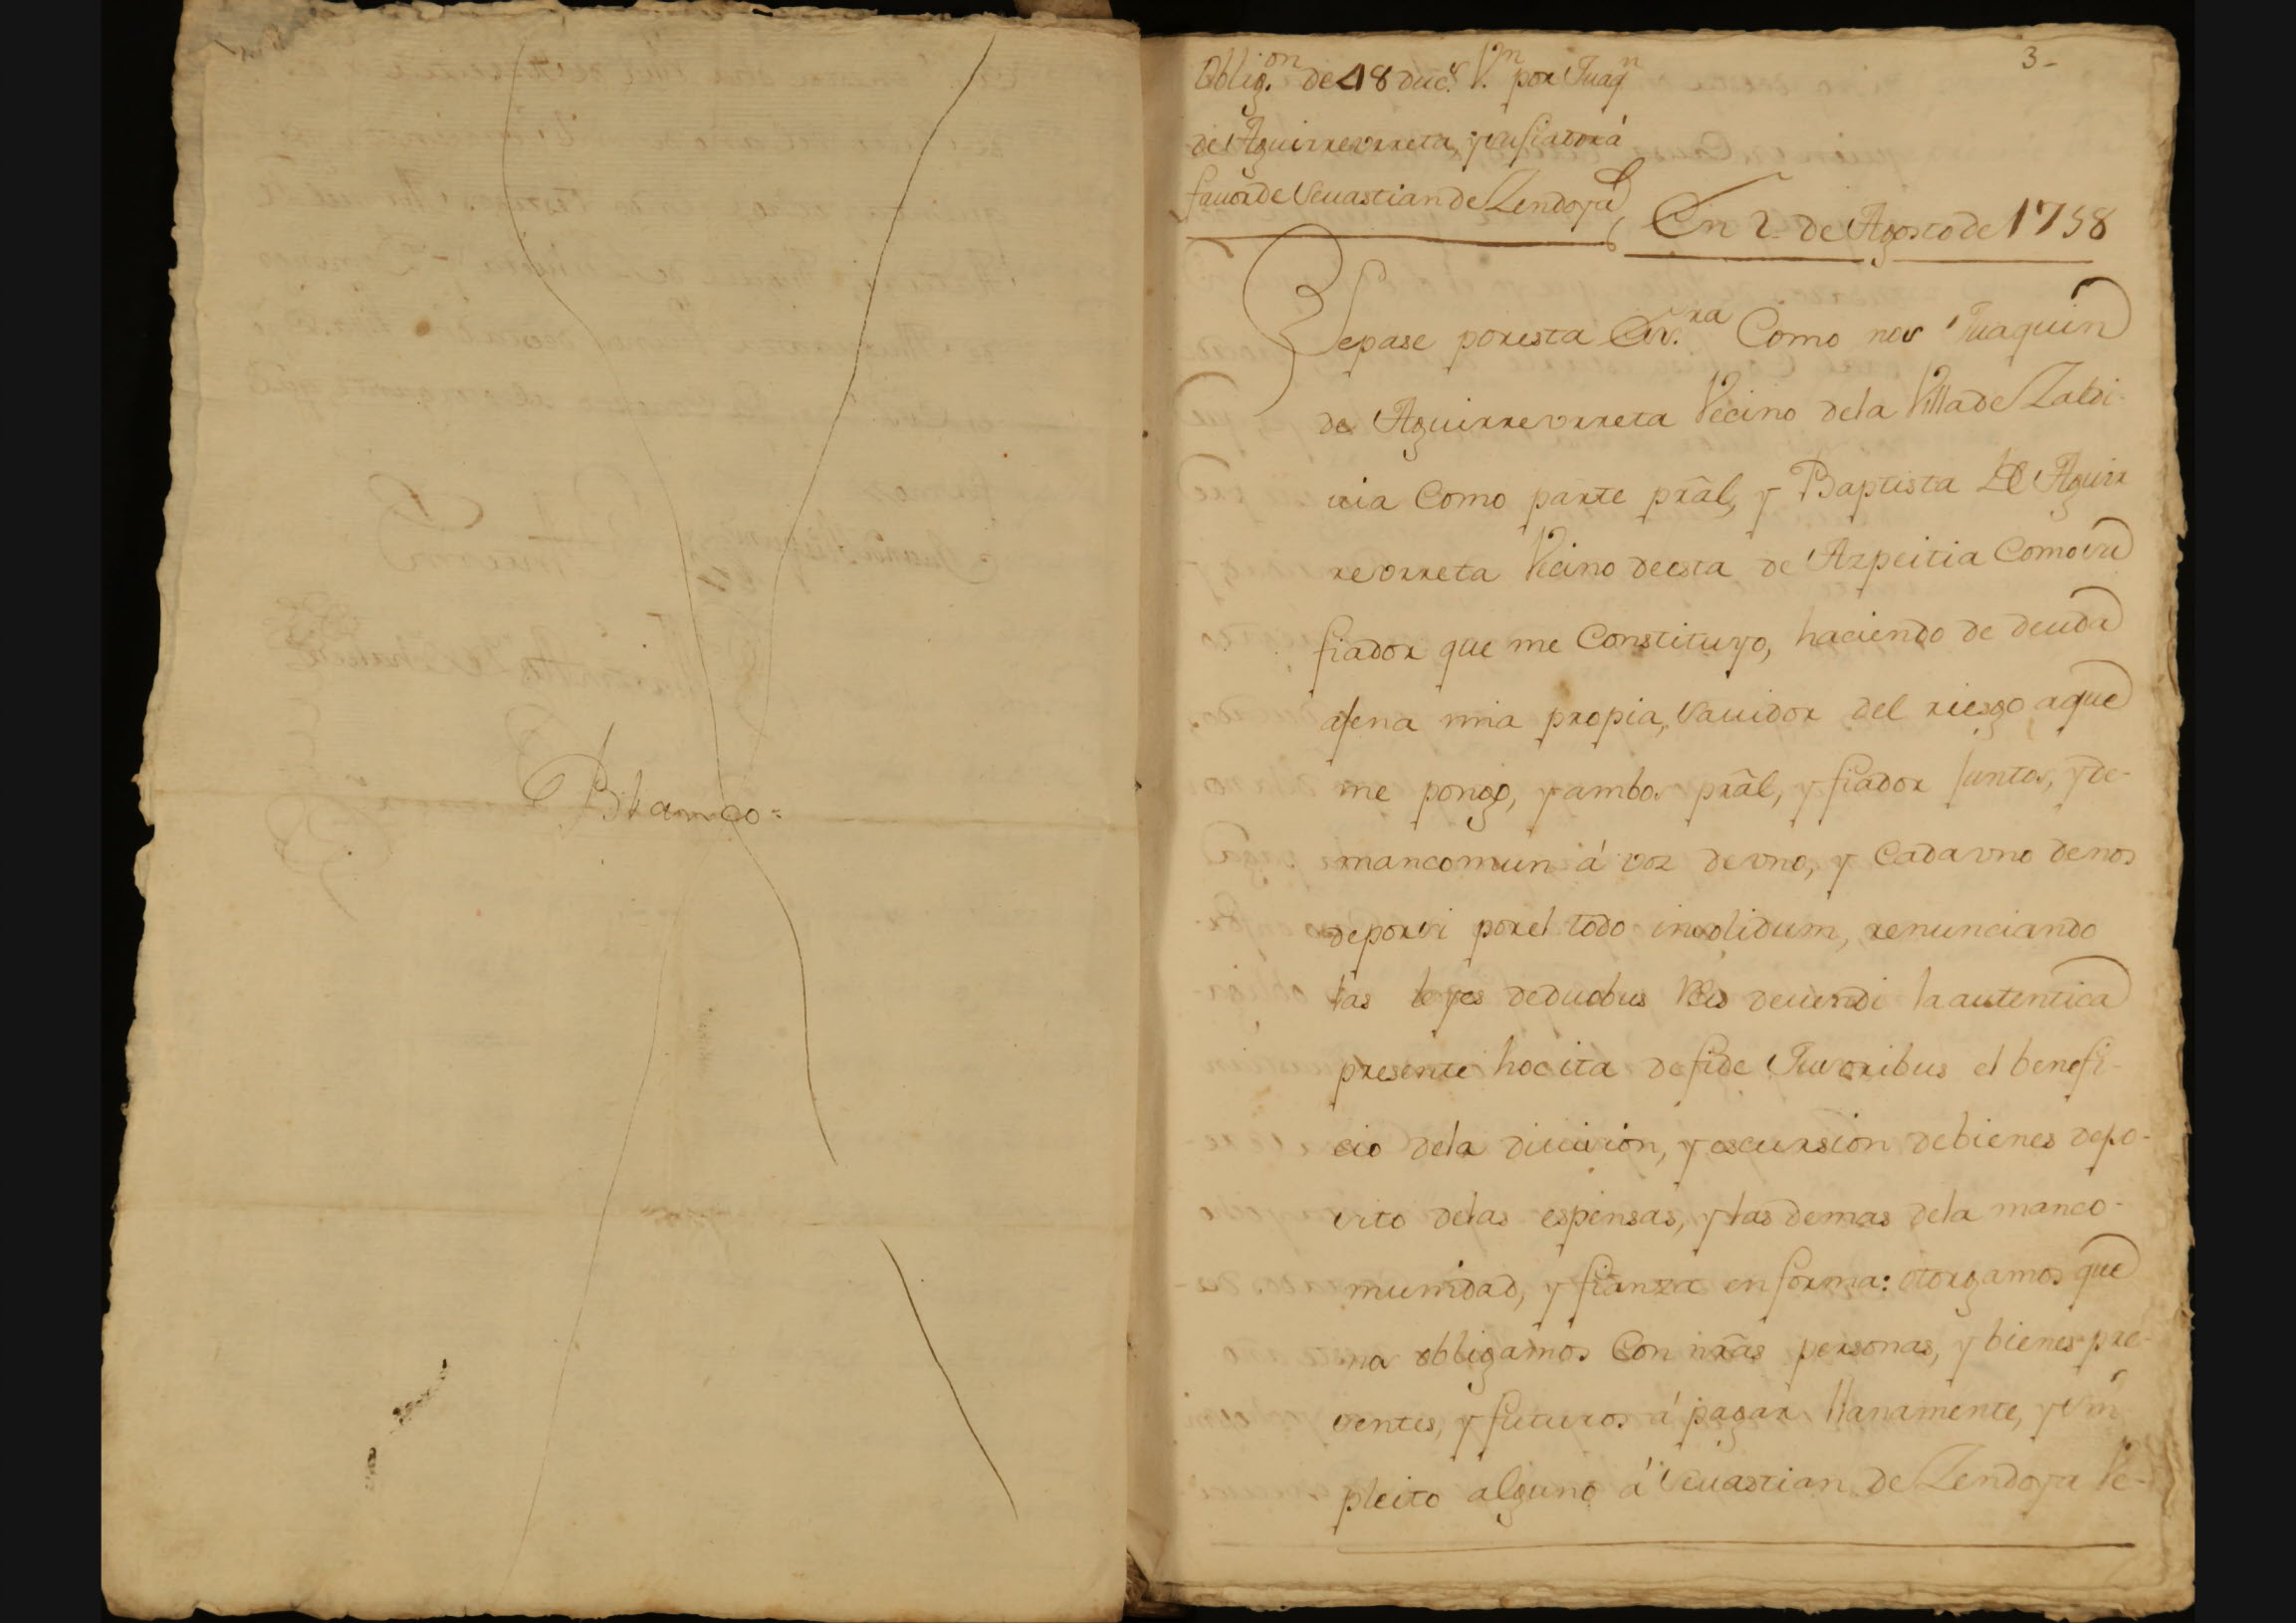 Blanco=
3-
Oblig.on de 48 duc.s V.n por Juaq.n
de Aguirreurreta, y su fiador á
favor de Sevastian de Lendoya
En 2 de Agosto de 1758
Sepase por esta Esc.ra Como nos Juaquin
de Aguirreurreta Vecino de la Villa de Zaldi-
uia Como parte prãl, y Baptista de Aguir
reurreta Vecino de esta de Azpeitia Como su
fiador que me Constituyo, haciendo de deuda
ajena mia propia, savidor del riesgo, a que
me pongo, y ambos prãl, y fiador Juntos, y de-
mancomun á voz de uno, y Cada uno de nos
de por si por el todo insolidum, renunciando
las leyes de duobus Reis deuendi la autentica
presente hoc ita de fide Jusoribus el benefi-
cio de la diuision, y escursion de bienes depo-
sito de las espensas, y las demas de la manco-
munidad, y fianza en forma: otorgamos que
nos obligamos Con nr̃as personas, y bienes pre-
sentes, y futuros á pagar llanamente, y sin
pleito alguno á Sevastian de Lendoya Ve-